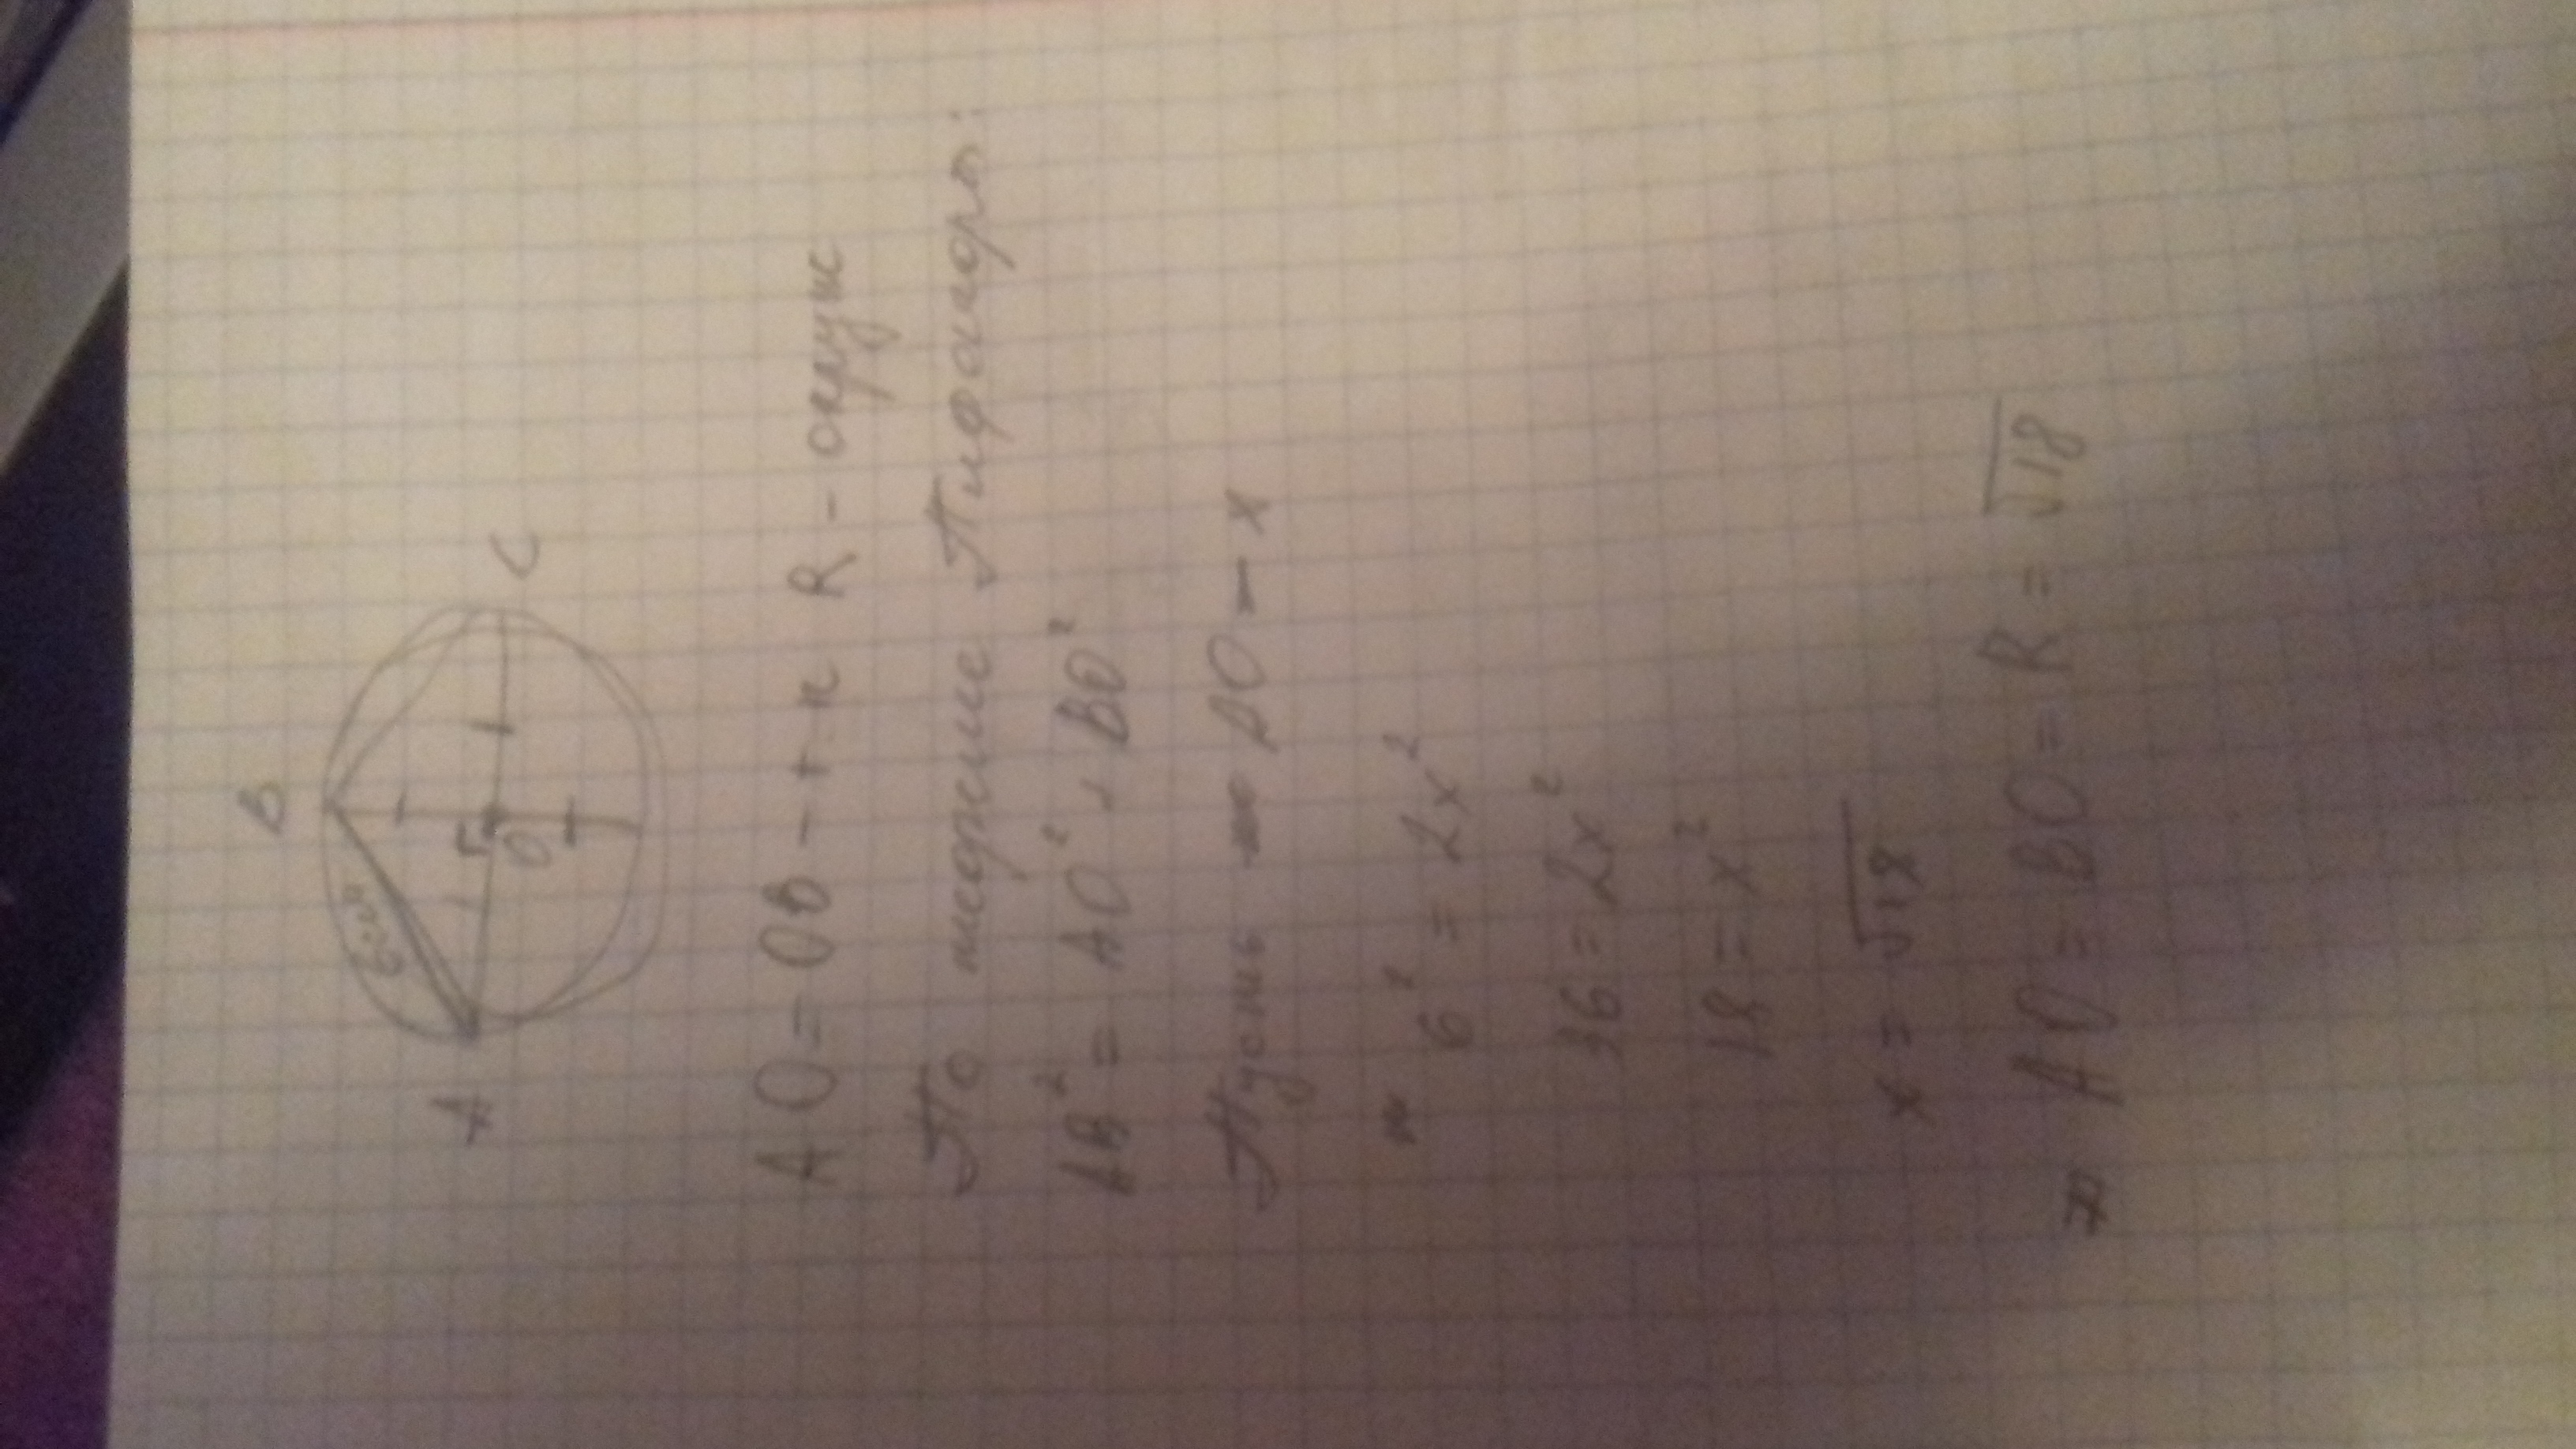 B
6см
A
O
C
AO = OB – т.к R – окруж
По теореме Пифагора:
AB² = AO² + BO²
Пусть AO – x
6² = 2x²
36 = 2x²
18 = x²
x = √18
AO = BO = R = √18